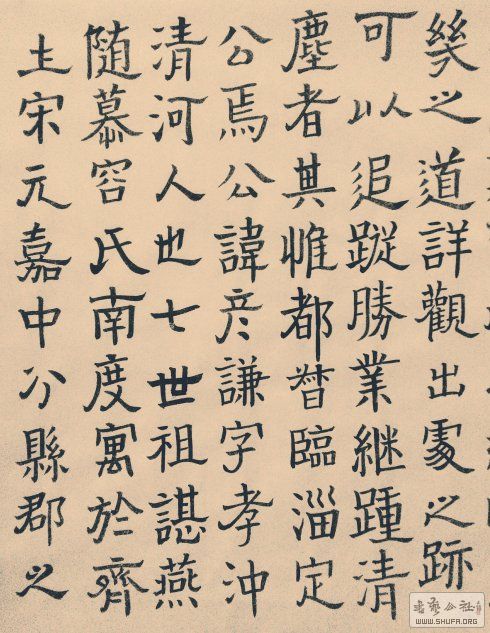 幾之道詳觀出處之跡
可以追蹤勝業継踵清
塵者其惟都督臨淄定
公焉公諱彦謙字孝沖
清河人也七世祖諶燕
随慕容氏南度寓於齊
土宋元嘉中分縣郡之
书艺公社
WWW.SHUFA.ORG